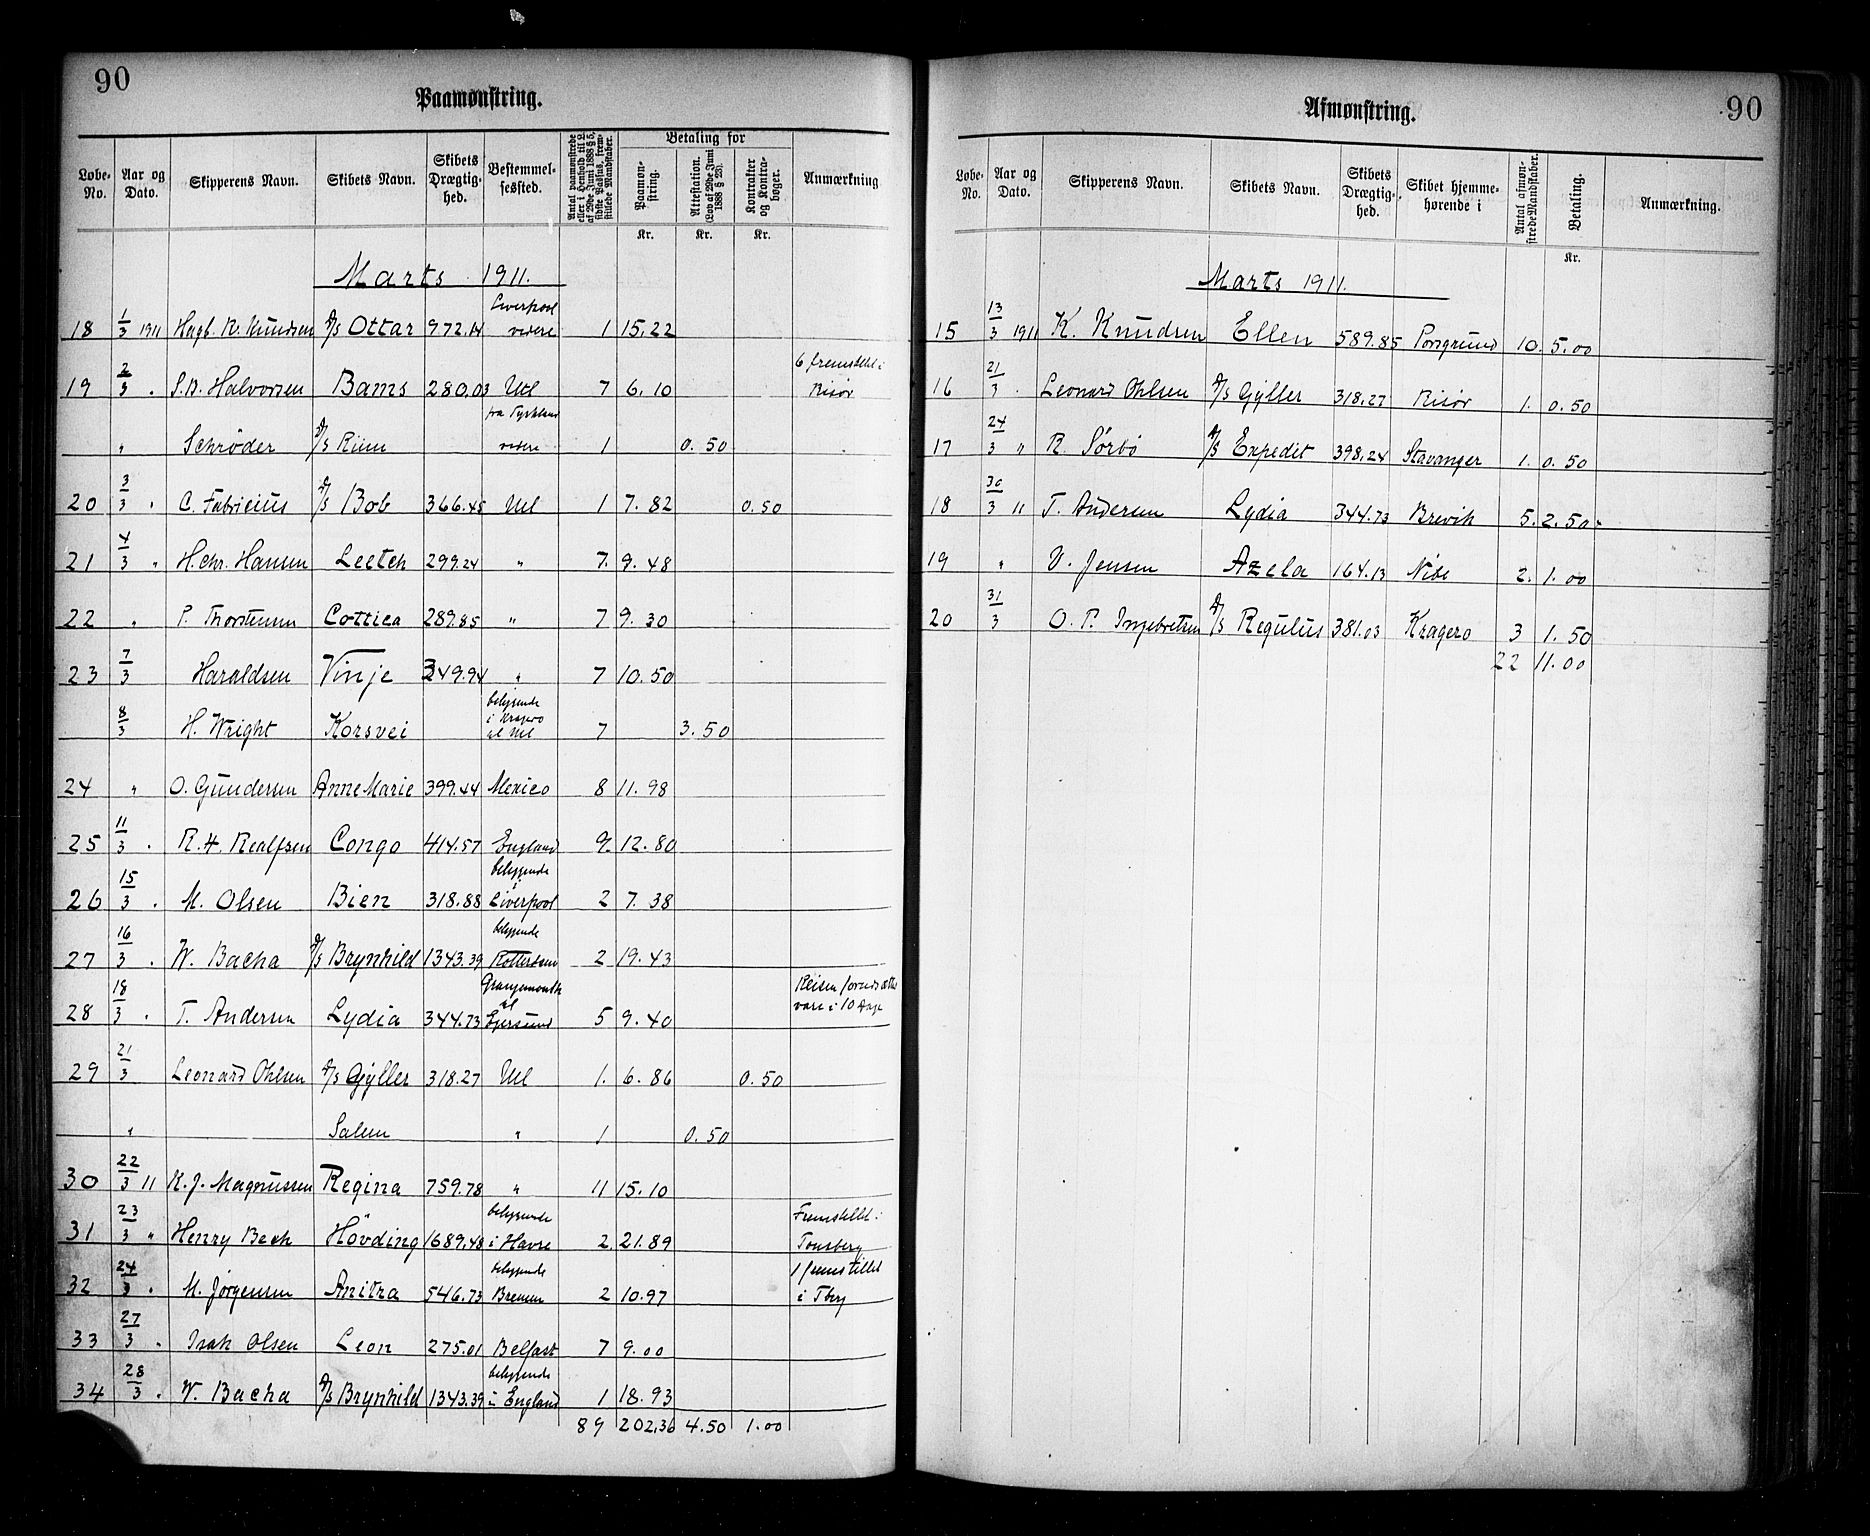 90
Paamønstring.
Løbe-No. Aar og Dato. Skipperens Navn. Skibets Navn. Skibets Drægtig-hed. Bestemmel-sessted. Antal paamønstrede eller i Henhold til § 2 af 29de Juni 1888 § 5, sidste Passus, frem-stillede Mandskaber. Betaling for Paamøn-string. Attestation. (Lov af 29de Juni 1888 § 23). Kontrakter og Kontra-bøger. Anmærkning
Kr. Kr. Kr.
Marts 1911.
18 1/3 1911 Hagb. R. Knudsen D/S Ottar 972.14 Liverpool videre 1 15.22
19 2/3 . S.B. Halvorsen Bams 280.03 Utl 7 6.10 6 fremstillet i Risør
" Schrøder D/S Riim fra Tyskland videre 1 0.50
20 3/3 " C. Fabricius D/S Bob 366.45 Utl 1 7.82 0.50
21 4/3 " H. Chr. Hansen Leetch 299.24 " 7. 9.48
22 " P. Thorstensen Cottica 289.85 " 7 9.30
23 7/3 Haraldsen Vinje 349.94 " 7 10.50
8/3 H. Wright Korsvei beliggende i Kragerø til Utl 7 3.50
24 " O. Gundersen Anne Marie 399.44 Mexico 8 11.98
25 11/3 . R.H. Realfsen Congo 414.57 England 9. 12.80
26 15/3 . M. Olsen Bien 318.88 beliggende i Liverpool 2 7.38
27 16/3 . W. Bacha D/S Brynhild 1343.39 beliggende Rotterdam 2 19.43
28 18/3 . T. Andersen Lydia 344.73 Grangemouth til Egersund 5 9.40 Reisen vare i 10 Dage
29 21/3 Leonard Ohlsen D/S Gyller 318.27 Utl 1. 6.86 0.50
" Salem " 1 0.50
30 22/3 11 K.J. Magnussen Regina 759.78 " 11 15.10
31 23/3 " Henry Bech Hövding 1689.48 beliggende i Havre 2. 21.89 Fremstillet i Tønsberg
32 24/3 . M. Jørgensen Anitra 546.73 beliggende Bremen 2 10.97 1 fremstillet i Tbg
33 27/3 . Isak Olsen Leon 275.01 Belfast 7 9.00
34 28/3 . W. Bacha D/S Brynhild 1343.39 beliggende i England 1 18.93
89 202.36 4.50 1.00
90
Afmønstring.
Løbe-No. Aar og Dato. Skipperens Navn. Skibets Navn. Skibets Drægtig-hed. Skibet hjemme-hørende i Antal afmøn-strede Mandskaber. Betaling. Anmærkning.
Kr.
Marts 1911.
15 13/3 1911 K. Knudsen Ellen 589.85 Porsgrund 10. 5.00
16 21/3 . Leonard Ohlsen D/S Gyller 318.27 Risör 1. 0.50
17 24/3 " R. Sørbö D/S Expedit 398.24 Stavanger 1. 0.50
18 30/3 11 T. Andersen Lydia 344.73 Brevik 5. 2.50
19 " V. Jensen Azela 164.13 Nibe 2. 1.00
20 31/3 O. P. Ingebretsen D/S Regulus 381.03 Kragerø 3 1.50
22 11.00